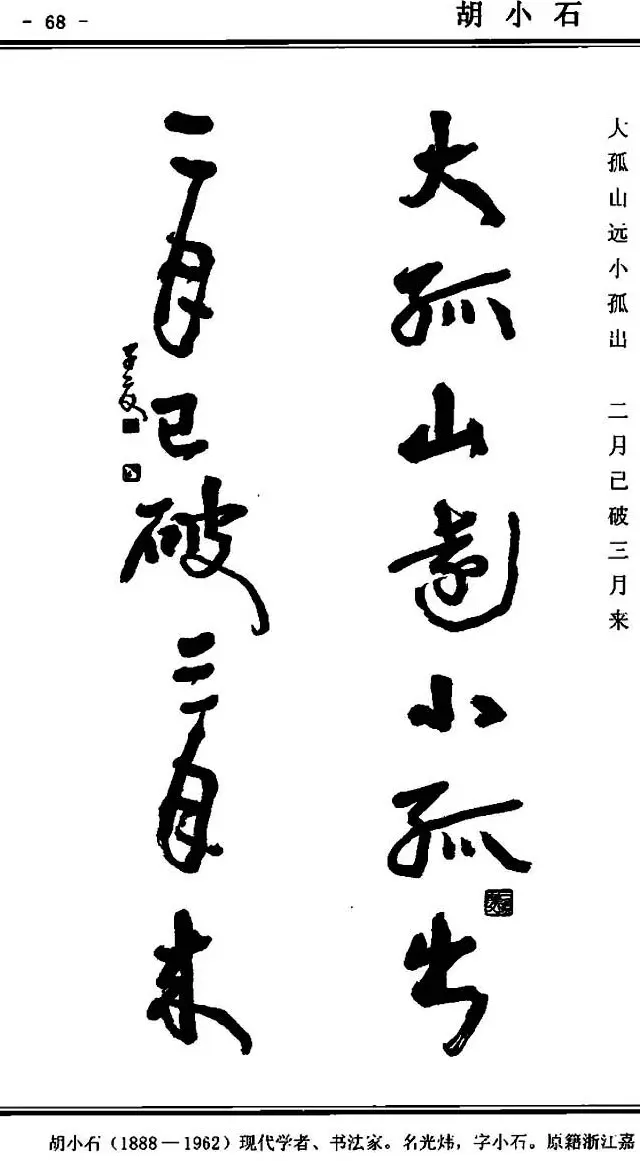 - 68 -
胡小石
大孤山远小孤出 二月已破三月来
大孤山遠小孤出
二月已破三月来
胡小石（1888—1962）现代学者、书法家。名光炜，字小石。原籍浙江嘉